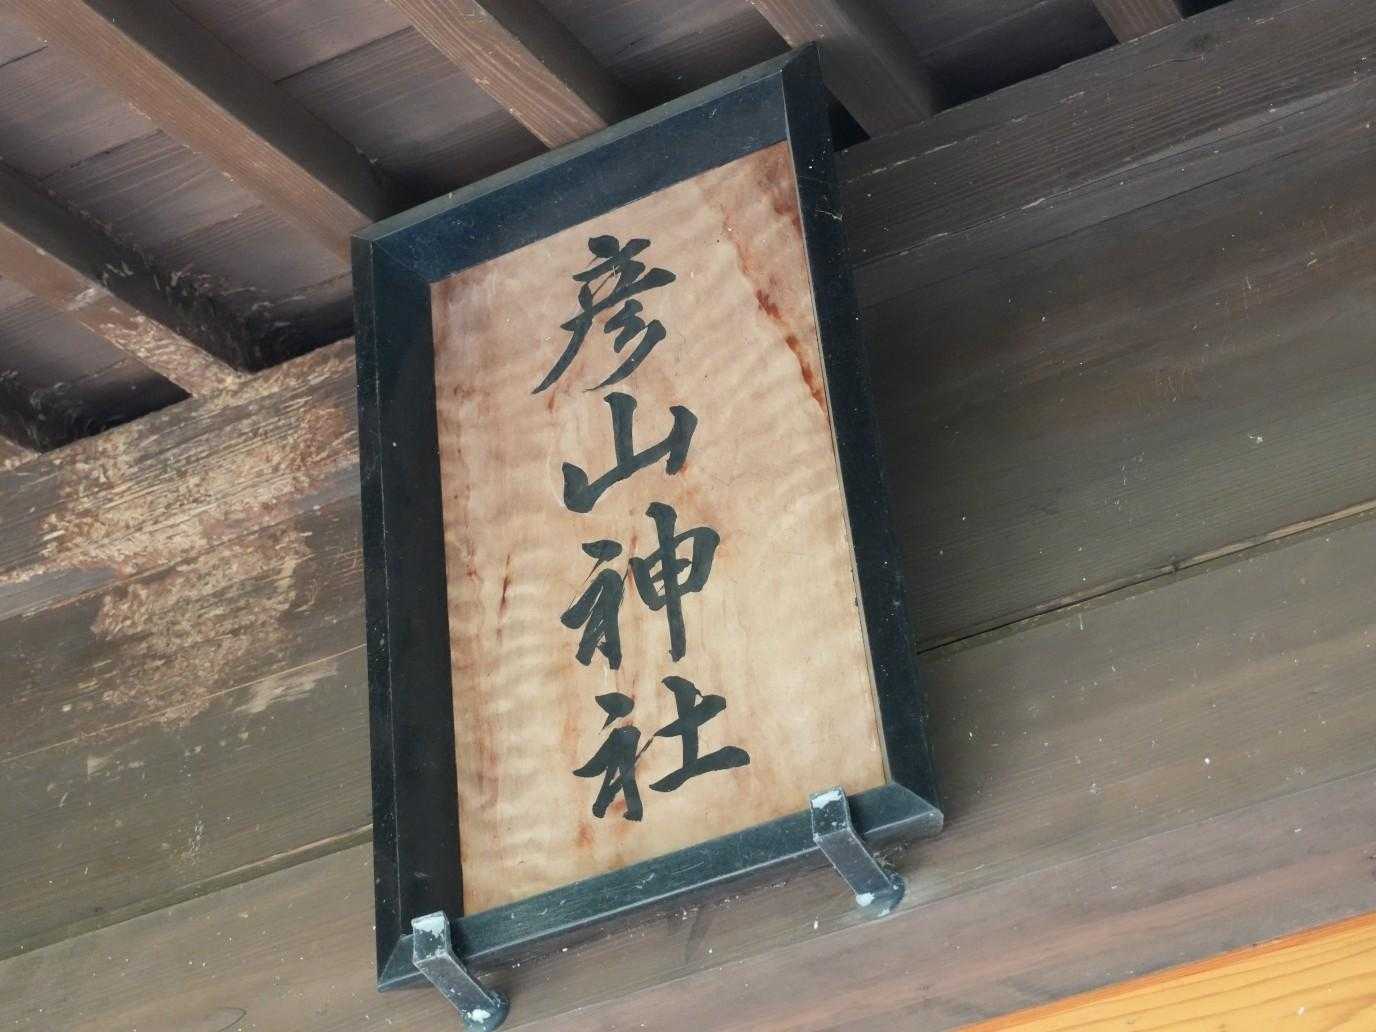 彦山神社